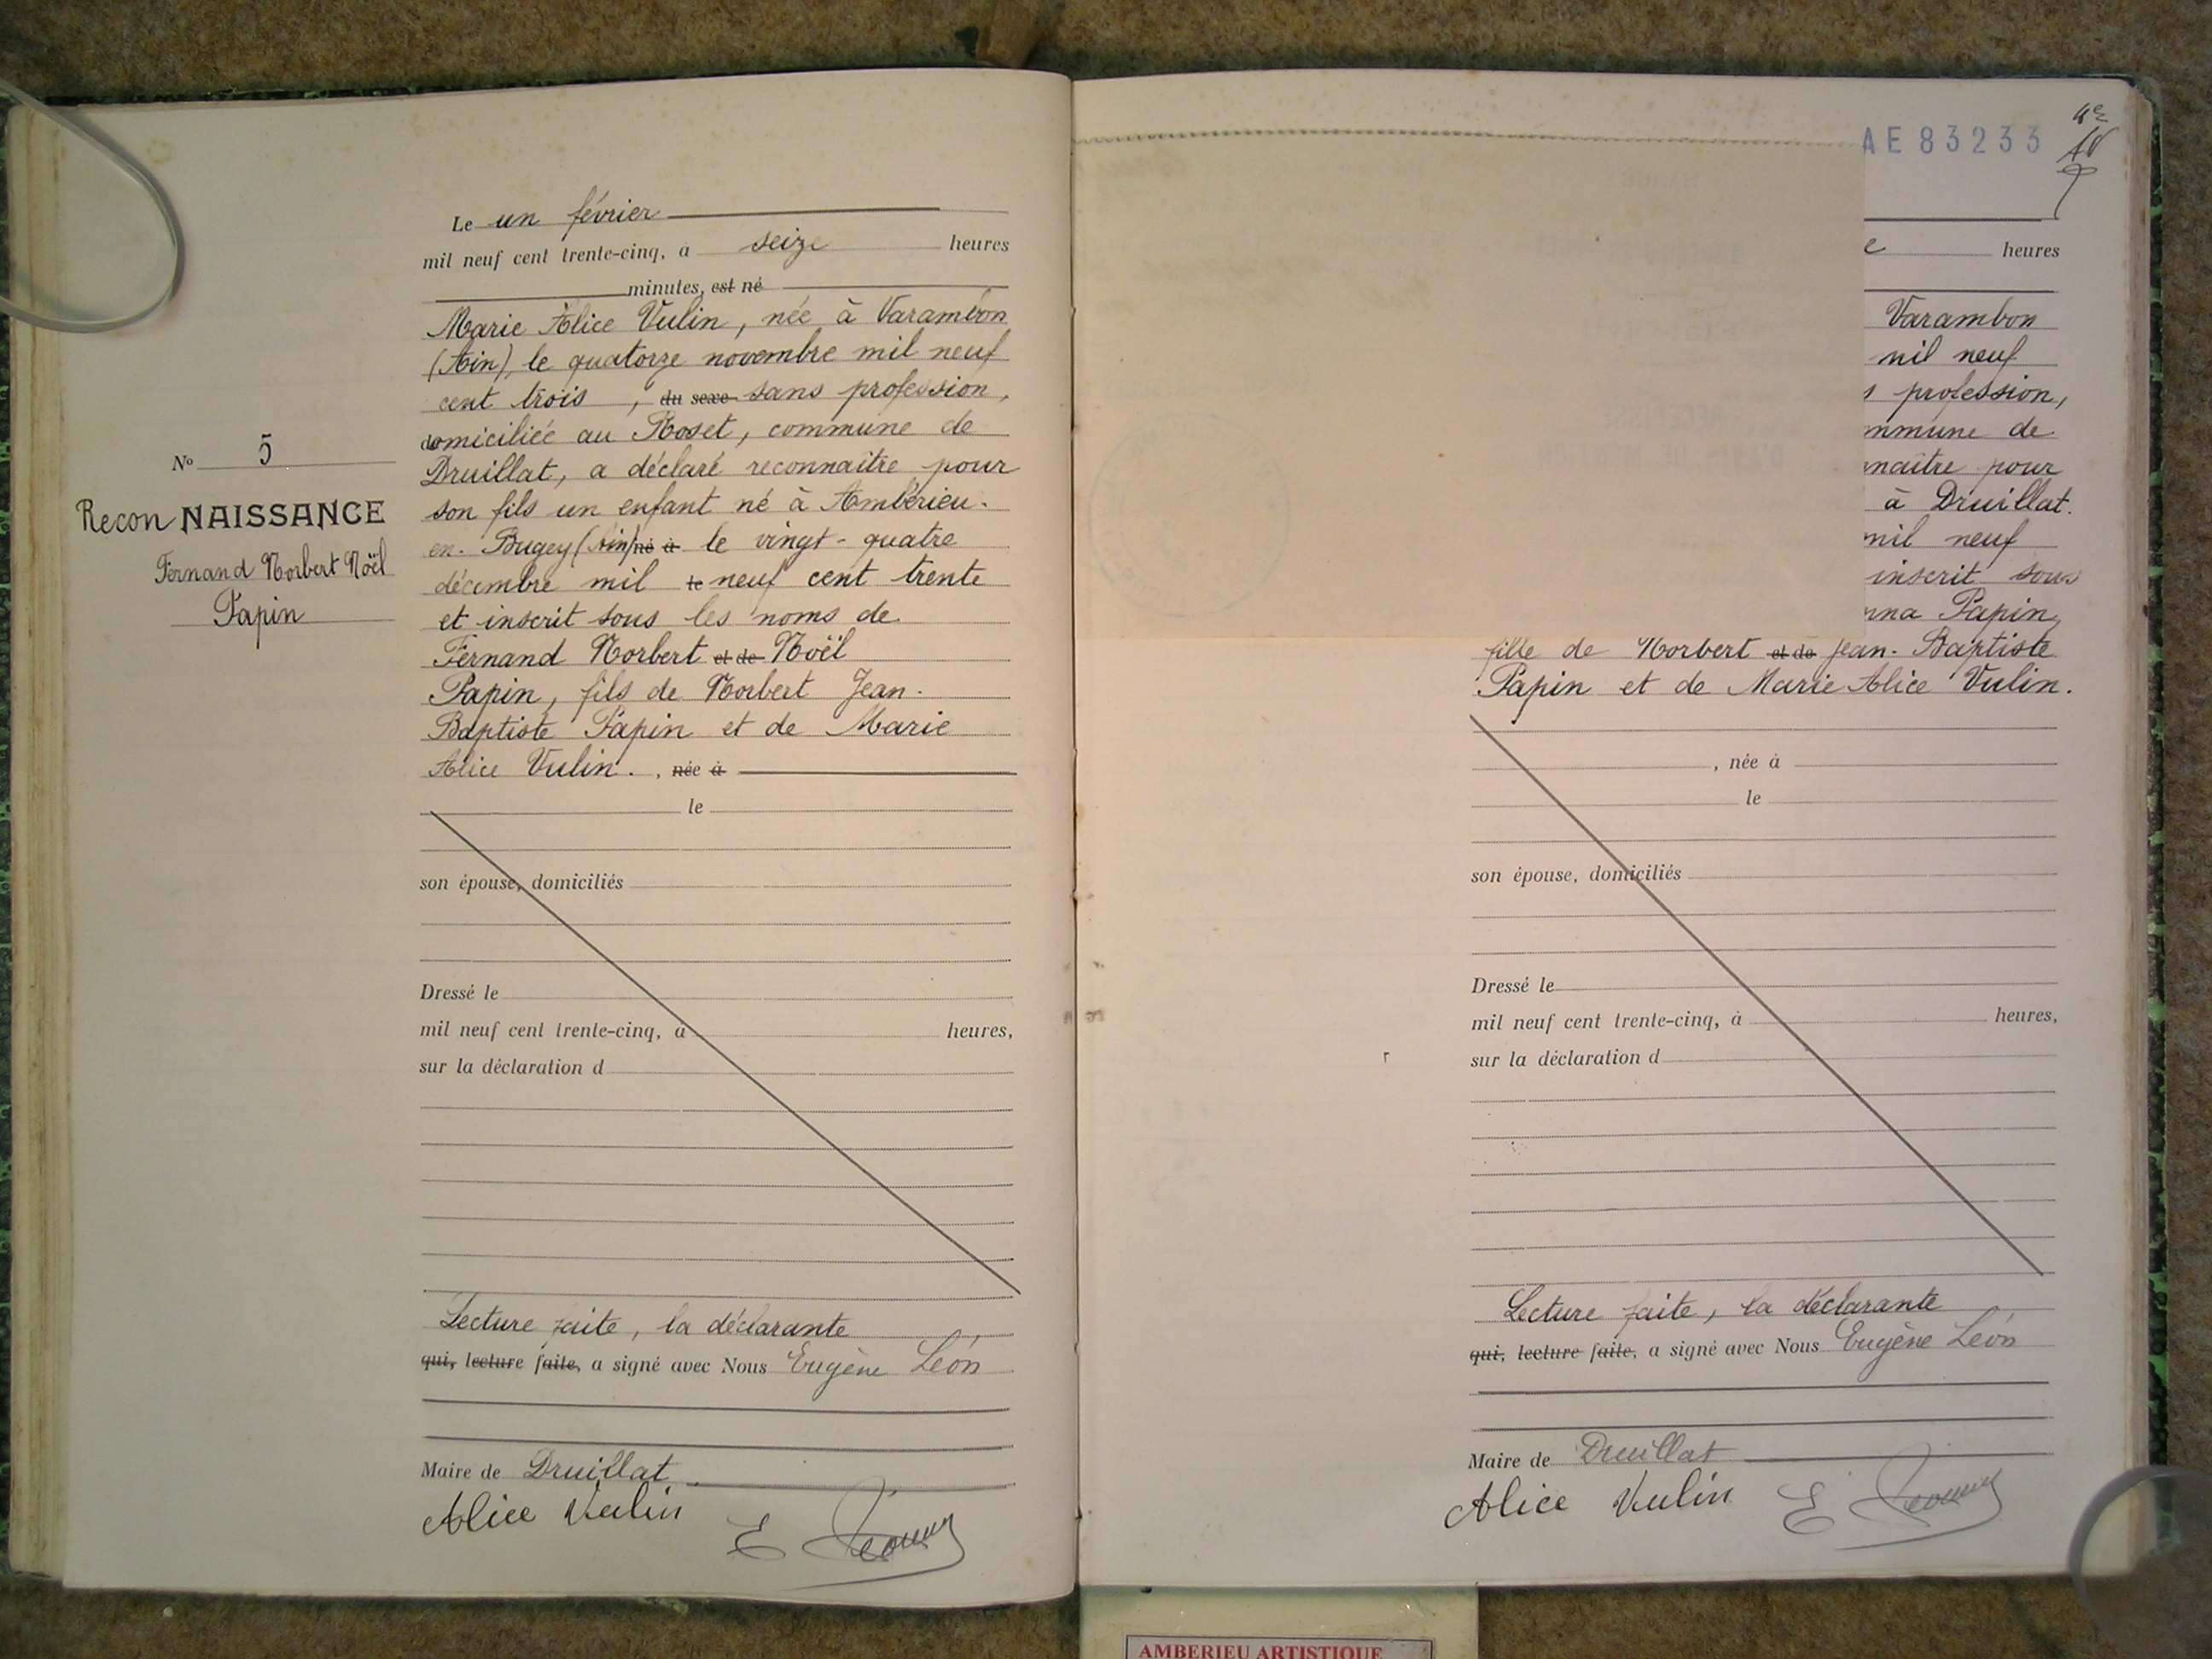 Le un février
mil neuf cent trente-cinq, à seize heures
minutes, est né
Marie Alice Vulin, née à Varambon
(Ain), le quatorze novembre mil neuf
cent trois, du sexe sans profession,
domiciliée au Roset, commune de
Druillat, a déclaré reconnaître pour
son fils un enfant né à Ambérieu-
en-Bugey (Ain) né à le vingt-quatre
décembre mil le neuf cent trente
et inscrit sous les noms de
Fernand Norbert et de Noël
Papin, fils de Norbert Jean-
Baptiste Papin et de Marie
Alice Vulin., née à
le
son épouse, domiciliés
Dressé le
mil neuf cent trente-cinq, à heures,
sur la déclaration d
Lecture faite, la déclarante
qui, lecture faite, a signé avec Nous Eugène Léon
Maire de Druillat
Alice Vulin E
No 5
Recon NAISSANCE
Fernand Norbert Noël
Papin
AE 83233
heures
Varambon
mil neuf
profession,
mmune de
naître pour
à Druillat.
mil neuf
inscrit sous
nna Papin,
fille de Norbert et de Jean-Baptiste
Papin et de Marie Alice Vulin.
, née à
le
son épouse, domiciliés
Dressé le
mil neuf cent trente-cinq, à heures,
sur la déclaration d
Lecture faite, la déclarante
qui, lecture faite, a signé avec Nous Eugène Léon
Maire de Druillat
Alice Vulin E
AMBERIEU ARTISTIQUE